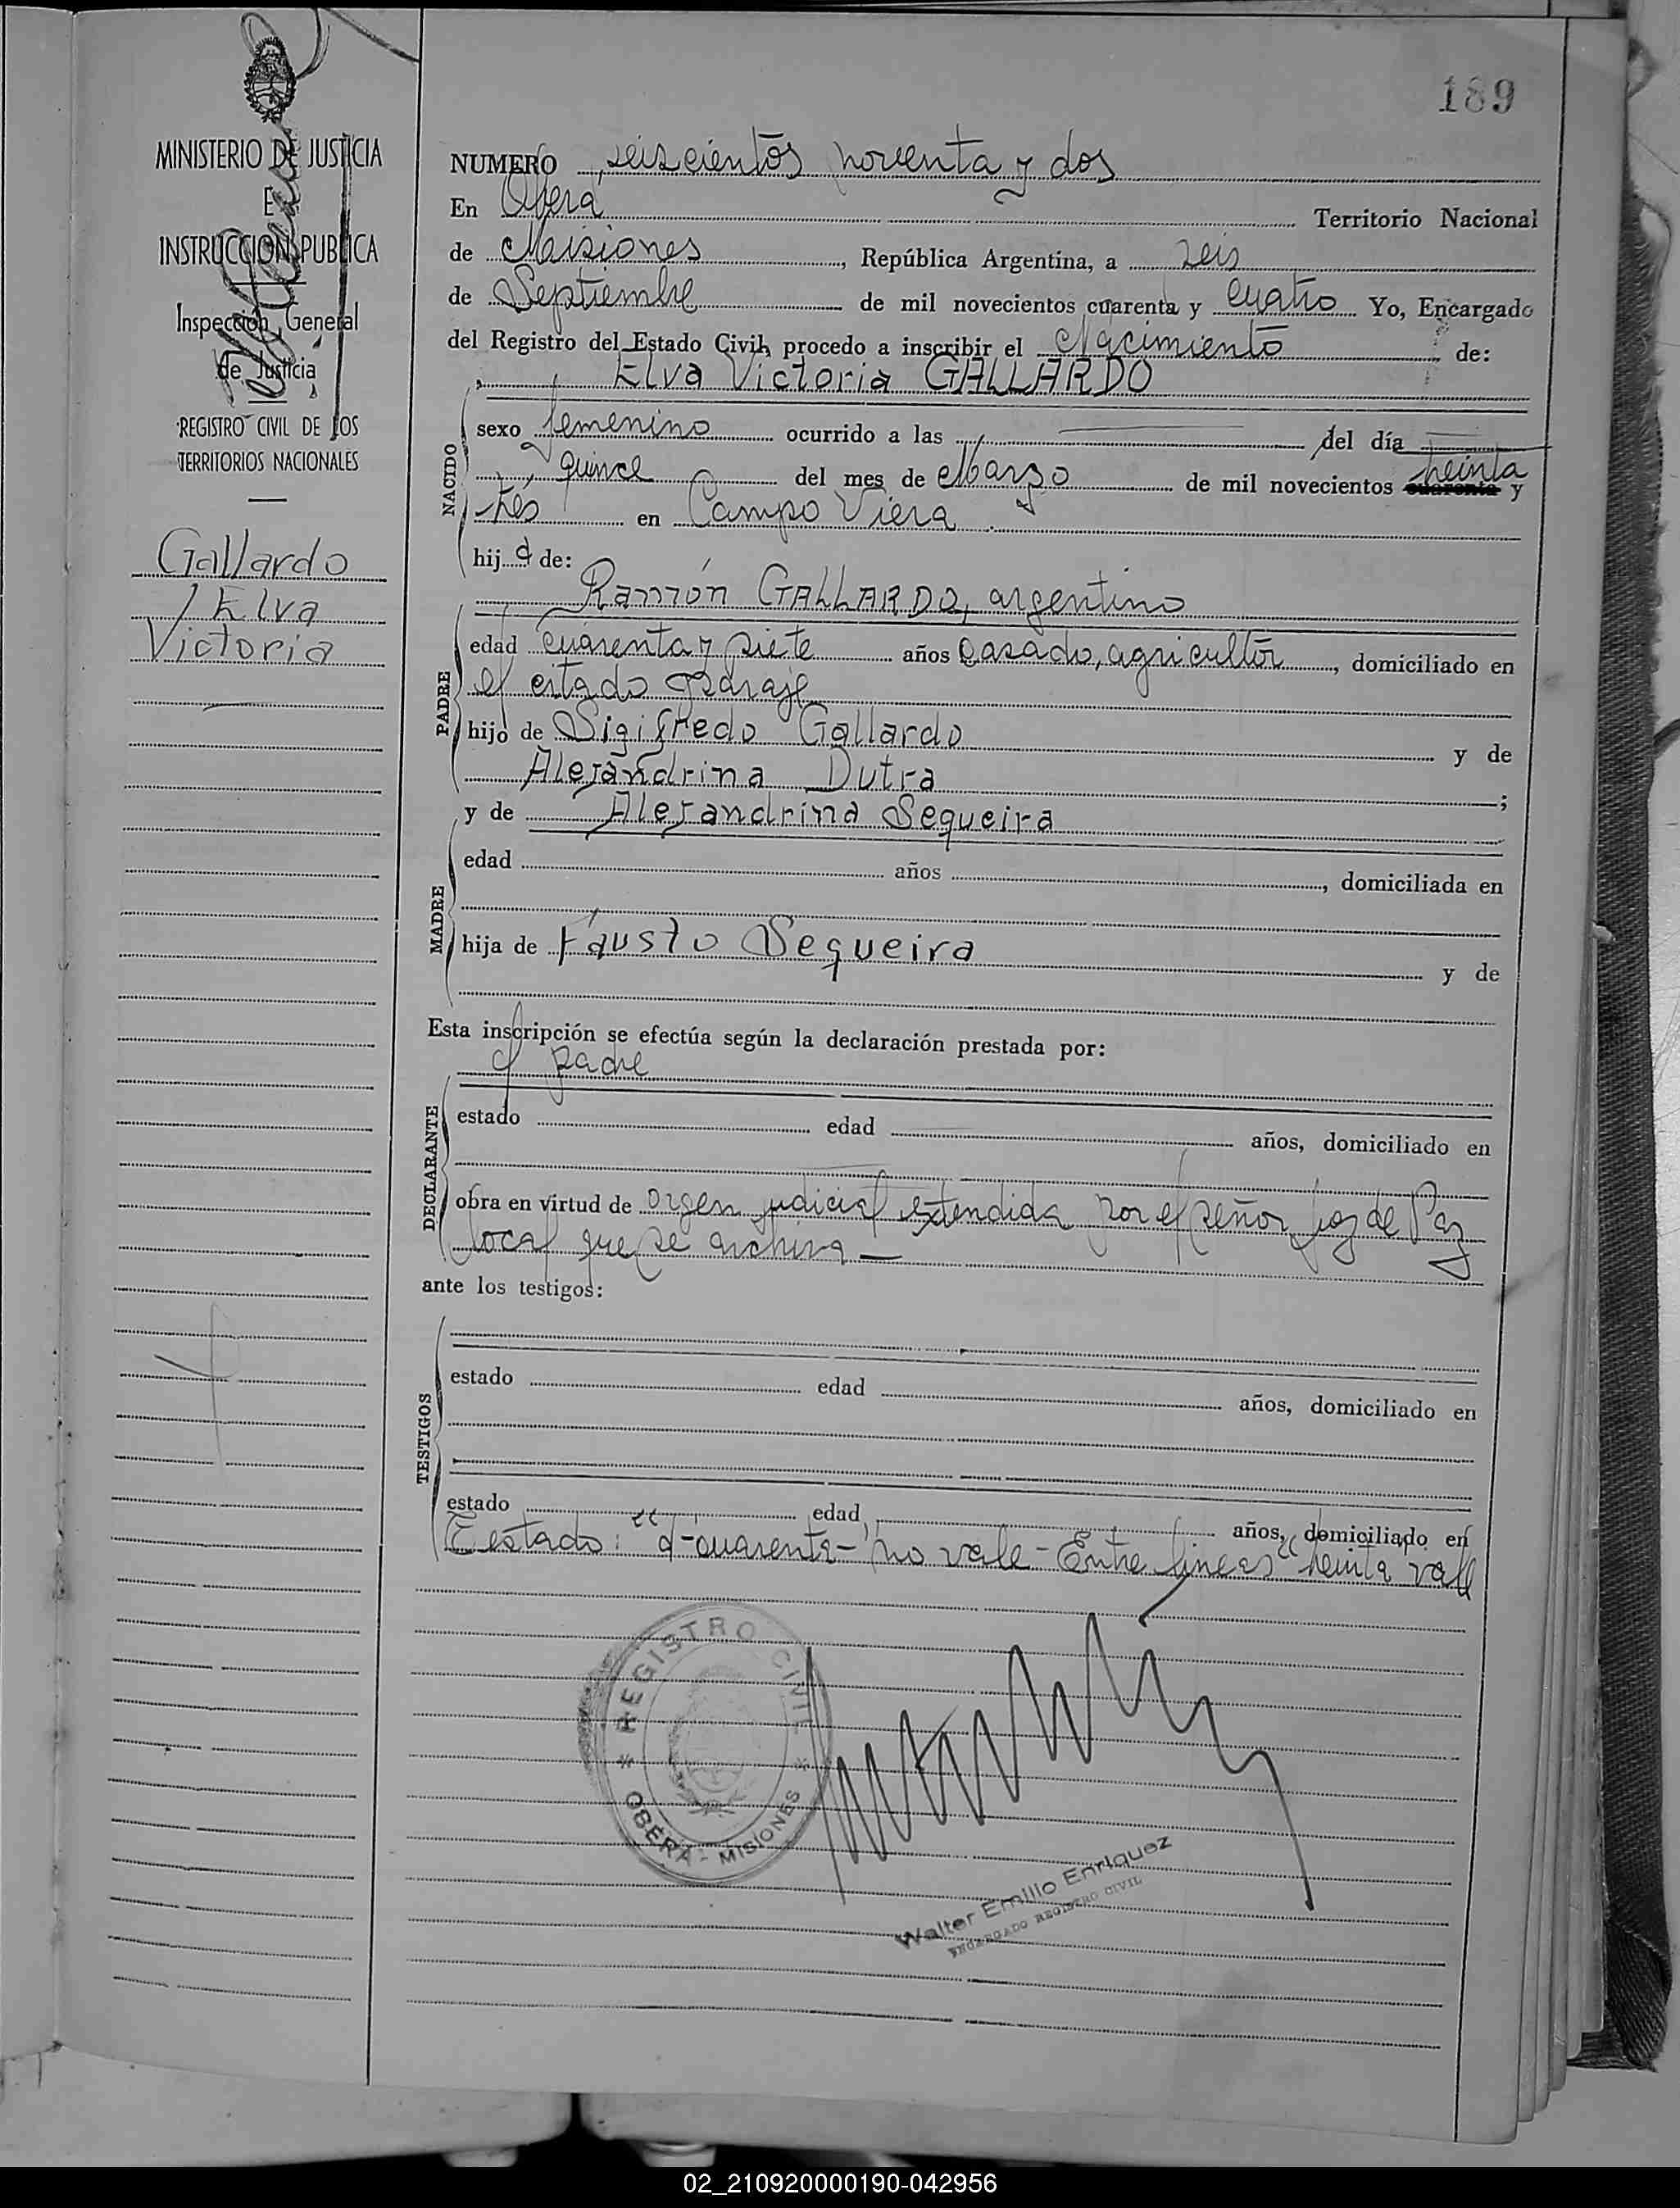 189
MINISTERIO DE JUSTICIA
E
INSTRUCCION PUBLICA
Inspección General
de Justicia
REGISTRO CIVIL DE LOS
TERRITORIOS NACIONALES
Gallardo
Elva
Victoria
NUMERO seiscientos noventa y dos
En Oberá Territorio Nacional
de Misiones, República Argentina, a seis
de Septiembre de mil novecientos cuarenta y cuatro Yo, Encargado
del Registro del Estado Civil, procedo a inscribir el Nacimiento de:
Elva Victoria GALLARDO
NACIDO
sexo femenino ocurrido a las del día
quince del mes de Marzo de mil novecientos cuarenta treinta y
tres en Campo Viera.
hija de:
Ramón GALLARDO, argentino
PADRE
edad cuarenta y siete años casado, agricultor, domiciliado en
el citado paraje
hijo de Sigifredo Gallardo y de
Alejandrina Dutra;
y de Alejandrina Sequeira
MADRE
edad años, domiciliada en
hija de Fausto Sequeira y de
Esta inscripción se efectúa según la declaración prestada por:
el padre
DECLARANTE
estado edad años, domiciliado en
obra en virtud de orden judicial extendida por el señor Juez de Paz
local que se archiva —
ante los testigos:
TESTIGOS
estado edad años, domiciliado en
estado edad años, domiciliado en
Testado: "d-cuarenta- no vale - Entre lineas "treinta vale
REGISTRO CIVIL
OBERÁ - MISIONES
Walter Emilio Enriquez
ENCARGADO REGISTRO CIVIL
02_210920000190-042956